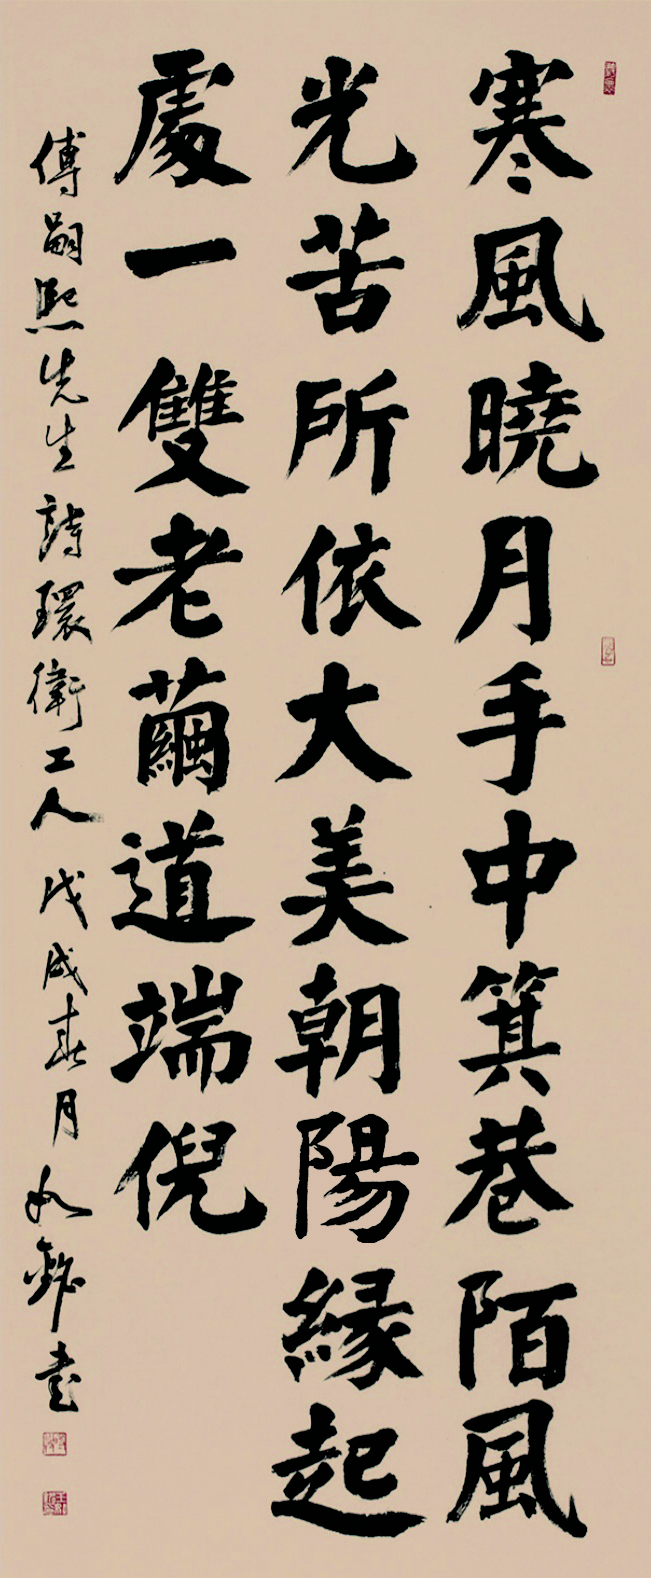 寒風曉月手中箕巷陌風
光苦所依大美朝陽緣起
處一雙老繭道端倪
傅嗣熙先生詩環衛工人戊戌春月如鄉書